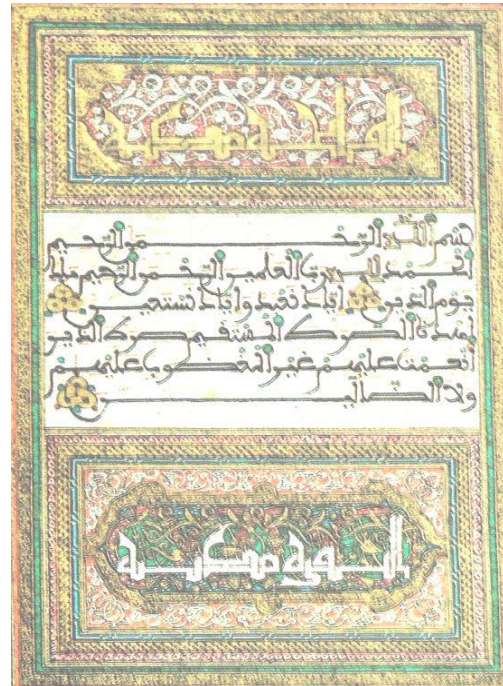 الفاتحة مكية
بسم الله الرحمن الرحيم
الحمد لله رب العلمين الرحمن الرحيم ملك
يوم الدين اياك نعبد واياك نستعين
اهدنا الصرط المستقيم صرط الذين
أنعمت عليهم غير المغضوب عليهم
ولا الضالين